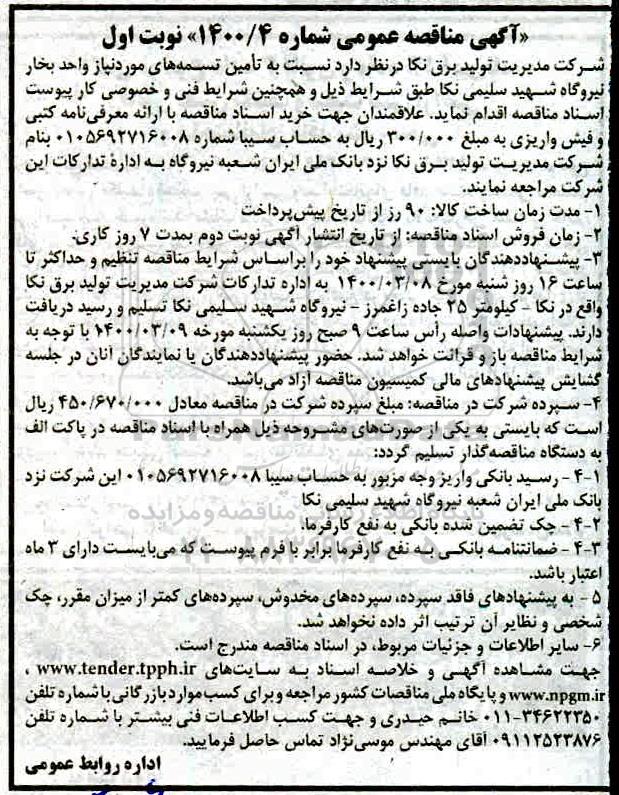 «آگهی مناقصه عمومی شماره ۱۴۰۰/۴» نوبت اول
شرکت مدیریت تولید برق نکا درنظر دارد نسبت به تأمین تسمه‌های موردنیاز واحد بخار
نیروگاه شهید سلیمی نکا طبق شرایط ذیل و همچنین شرایط فنی و خصوصی کار پیوست
اسناد مناقصه اقدام نماید. علاقمندان جهت خرید اسناد مناقصه با ارائه معرفی‌نامه کتبی
و فیش واریزی به مبلغ ۳۰۰/۰۰۰ ریال به حساب سیبا شماره ۰۱۰۵۶۹۲۷۱۶۰۰۸ بنام
شرکت مدیریت تولید برق نکا نزد بانک ملی ایران شعبه نیروگاه به ادارهٔ تدارکات این
شرکت مراجعه نمایند.
۱- مدت زمان ساخت کالا: ۹۰ رز از تاریخ پیش‌پرداخت
۲- زمان فروش اسناد مناقصه: از تاریخ انتشار آگهی نوبت دوم بمدت ۷ روز کاری.
۳- پیشنهاددهندگان بایستی پیشنهاد خود را براساس شرایط مناقصه تنظیم و حداکثر تا
ساعت ۱۶ روز شنبه مورخ ۱۴۰۰/۰۳/۰۸ به اداره تدارکات شرکت مدیریت تولید برق نکا
واقع در نکا - کیلومتر ۲۵ جاده زاغمرز - نیروگاه شهید سلیمی نکا تسلیم و رسید دریافت
دارند. پیشنهادات واصله رأس ساعت ۹ صبح روز یکشنبه مورخه ۱۴۰۰/۰۳/۰۹ با توجه به
شرایط مناقصه باز و قرائت خواهد شد. حضور پیشنهاددهندگان یا نمایندگان آنان در جلسه
گشایش پیشنهادهای مالی کمیسیون مناقصه آزاد می‌باشد.
۴- سپرده شرکت در مناقصه: مبلغ سپرده شرکت در مناقصه معادل ۴۵۰/۶۷۰/۰۰۰ ریال
است که بایستی به یکی از صورت‌های مشروحه ذیل همراه با اسناد مناقصه در پاکت الف
به دستگاه مناقصه‌گذار تسلیم گردد:
۴-۱ - رسید بانکی واریز وجه مزبور به حساب سیبا ۰۱۰۵۶۹۲۷۱۶۰۰۸ این شرکت نزد
بانک ملی ایران شعبه نیروگاه شهید سلیمی نکا
۴-۲ - چک تضمین شده بانکی به نفع کارفرما.
۴-۳ - ضمانتنامه بانکی به نفع کارفرما برابر با فرم پیوست که می‌بایست دارای ۳ ماه
اعتبار باشد.
۵- به پیشنهادهای فاقد سپرده، سپرده‌های مخدوش، سپرده‌های کمتر از میزان مقرر، چک
شخصی و نظایر آن ترتیب اثر داده نخواهد شد.
۶- سایر اطلاعات و جزئیات مربوط، در اسناد مناقصه مندرج است.
جهت مشاهده آگهی و خلاصه اسناد به سایت‌های www.tender.tpph.ir ،
www.npgm.ir و پایگاه ملی مناقصات کشور مراجعه و برای کسب موارد بازرگانی با شماره تلفن
۰۱۱-۳۴۶۲۲۳۵۰ خانم حیدری و جهت کسب اطلاعات فنی بیشتر با شماره تلفن
۰۹۱۱۲۵۲۳۸۷۶ آقای مهندس موسی‌نژاد تماس حاصل فرمایید.
اداره روابط عمومی